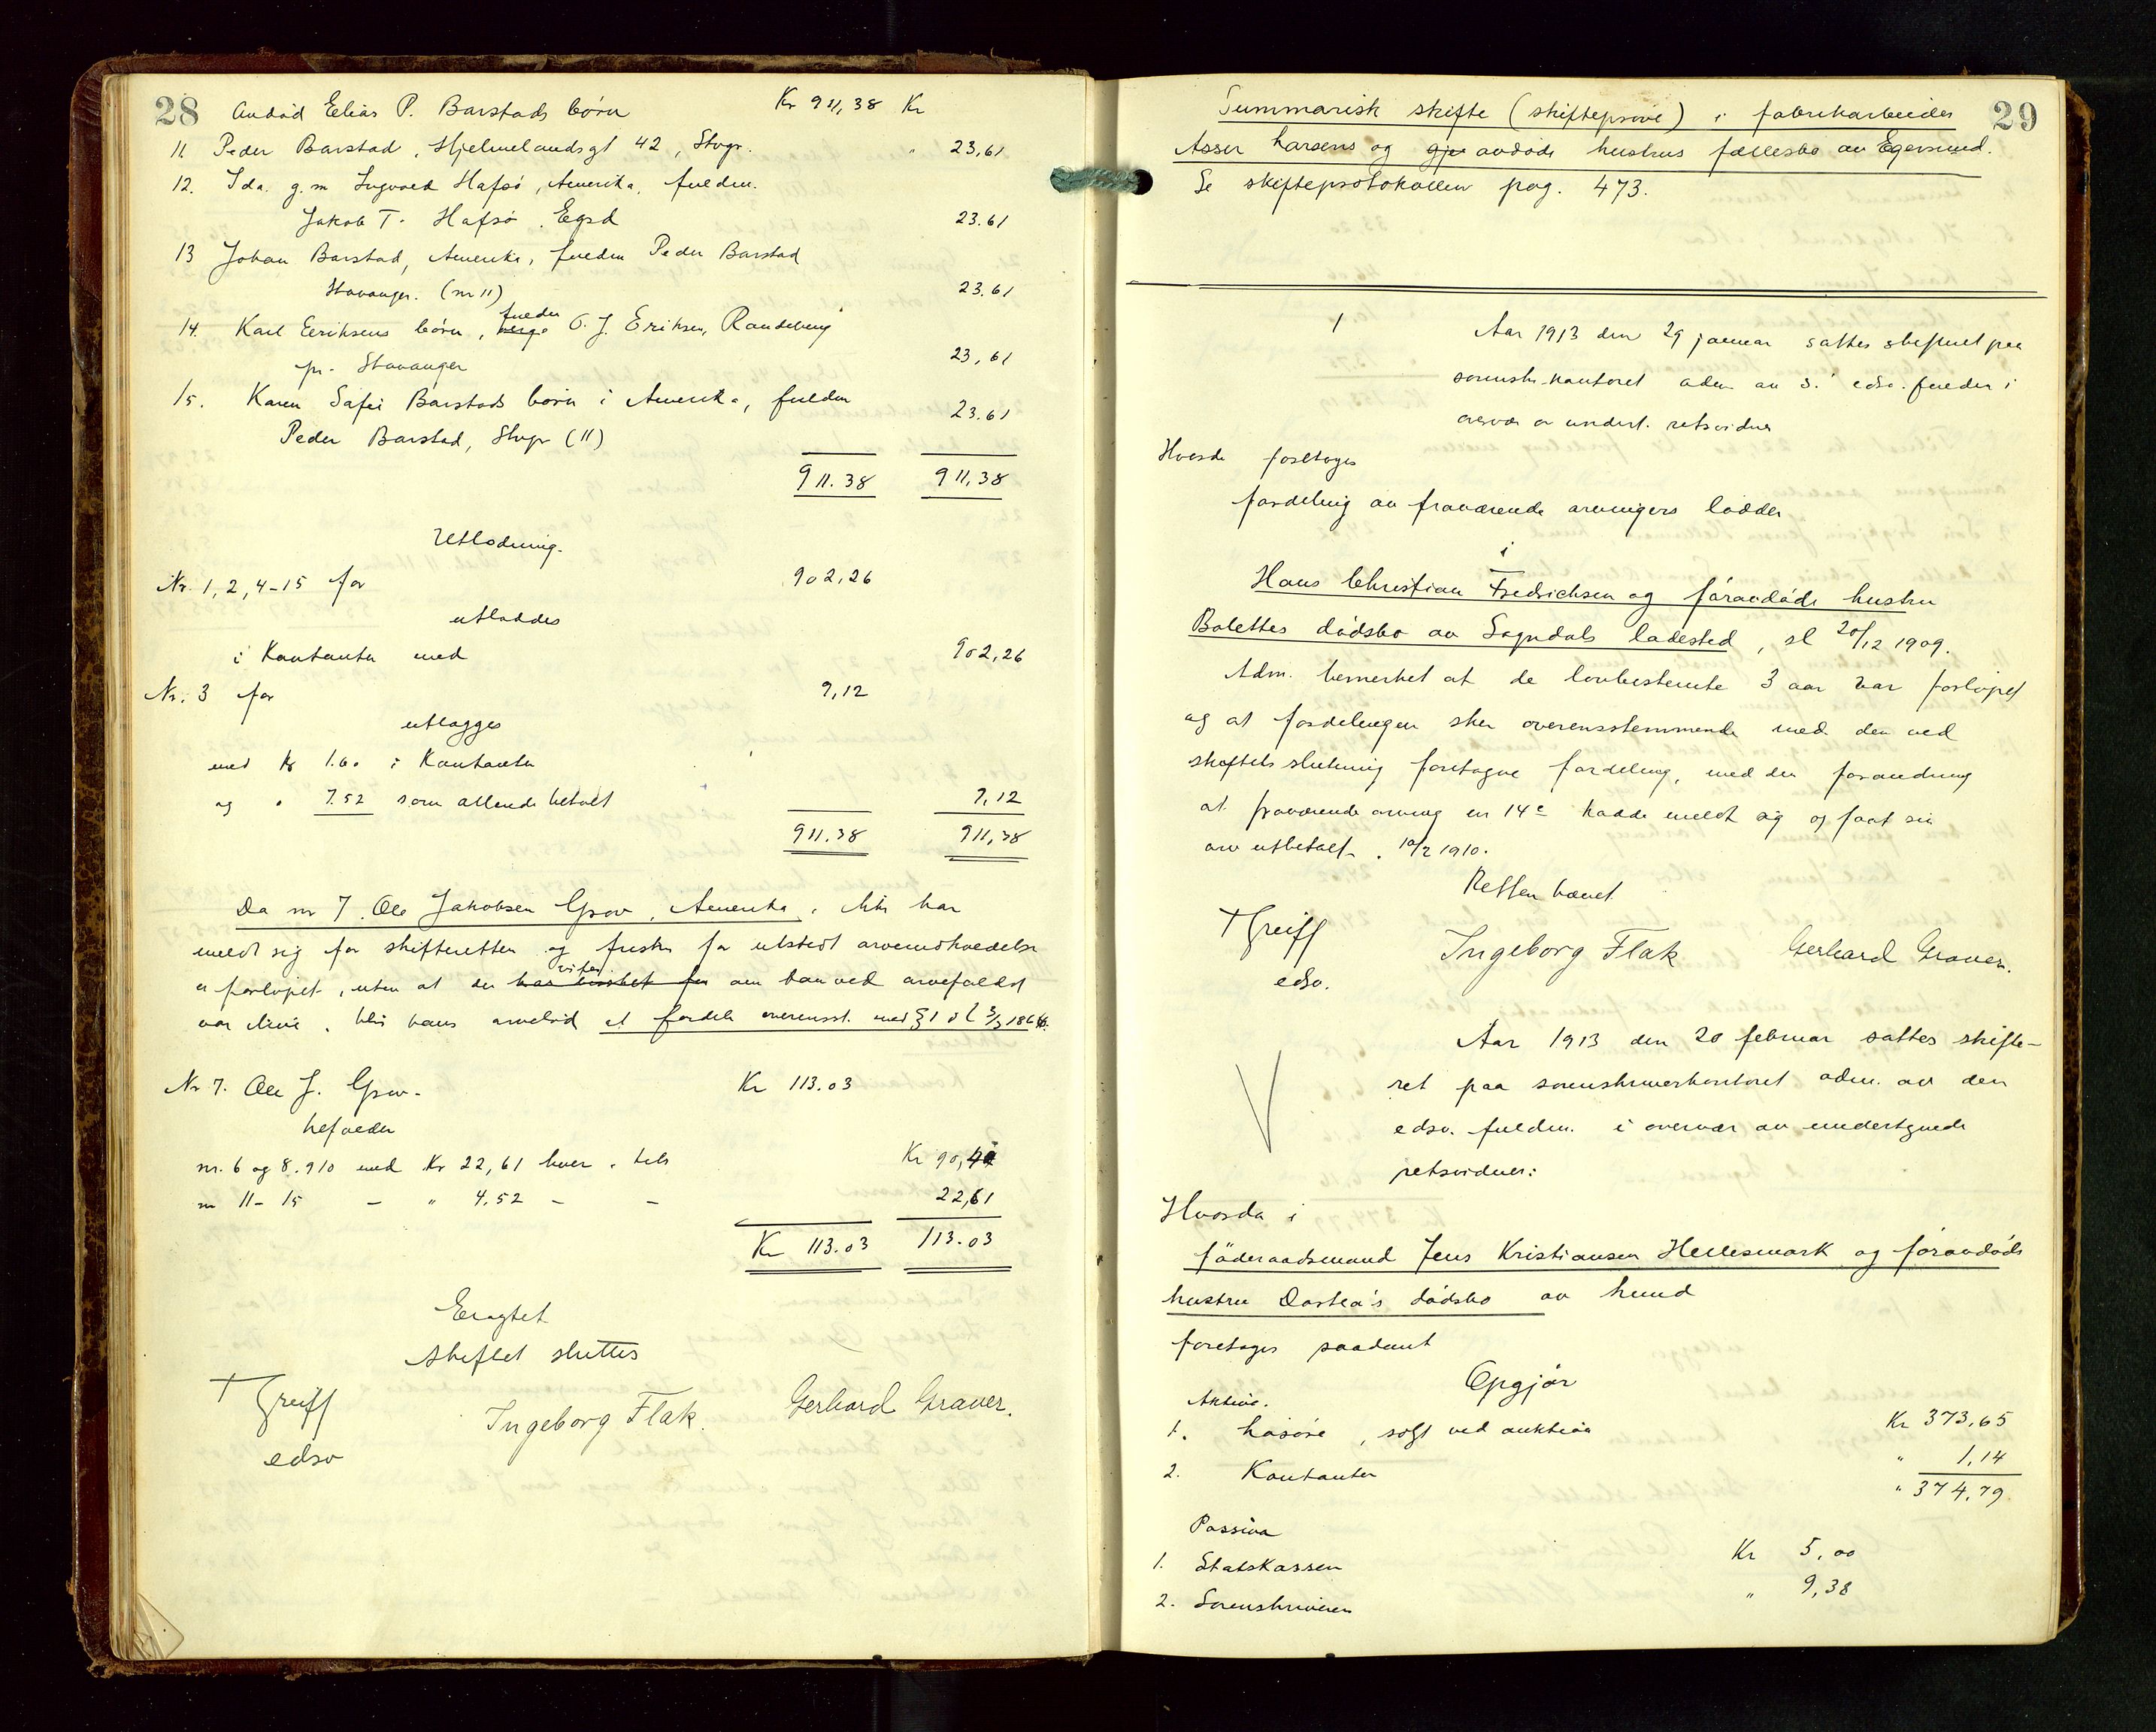 28 Avdød Elias P. Barstads børn Kr 911,38 Kr
11. Peder Barstad, Hjelmelandsgt 42, Stvgr. " 23,61
12. Ida g.m Ingvald Hafsø, Amerika, fuldm.
Jakob T. Hafsø, Egsd 23.61
13 Johan Barstad, Amerika, fuldm Peder Barstad
Stavanger. (nr 11) 23.61
14. Karl Eeriksens børn, verge fuldm O. J. Eriksen, Randeberg
pr. Stavanger 23,61
15. Karen Safie Barstads børn i Amerika, fuldm 23.61
Peder Barstad, Stvgr (11)
911.38 911,38
Utlodning.
Nr. 1, 2, 4-15 for 902,26
utloddes
i Kontanter med 902,26
Nr. 3 for 9,12
utlægges
med kr 1.60 i Kontanter
og " 7.52 som allerede betalt 9,12
911.38 911,38
Da nr 7. Ole Jakobsen Grov, Amerika, ikke har
meldt sig for skifteretten og fristen for utstedt arveindkaldelse
er forløpet, uten at der vites om han ved arvefaldet
var ilive, blir hans arvelod at fordele overensst. med § 1 i l 3/3 1866.
Nr 7. Ole J. Grov. Kr 113.03
nr. 6 og 8. 9 10 med Kr 22,61 hver, tils Kr 90,42
nr 11-15 - " 4,52 - - 22,61
Kr 113.03 113.03
Eragtet
Skiftet sluttes
T Greiff Ingeborg Flak. Gerhard Graver.
edsv
29
Summarisk skifte (skifteprøve) i fabrikarbeider
Asser Larsens og gjen avdøde hustrus fællesbo av Egersund.
Se skifteprotokollen pag. 473.
1 Aar 1913 den 29 januar sattes skifteret paa
sorenskr.kontoret adm av s. edsv. fuldm i
overvær av undert. retsvidner
Hvorda foretages
fordeling av fraværende arvingers lodder
i
Hans Christian Fredrichsen og føravdøde hustru
Bolettes dødsbo av Sogndals ladested, sl 20/12 1909.
Adm. bemerket at de lovbestemte 3 aar var forløpet
og at fordelingen sker overensstemmende med den ved
skiftets slutning foretagne fordeling, med den forandring
at fraværende arving nr 14 hadde meldt sig og faat sin
arv utbetalt. 10/2 1910.
Retten hævet.
T Greiff Ingeborg Flak Gerhard Graver.
edsv.
Aar 1913 den 20 februar sattes skifte-
ret paa sorenskriverkontoret adm. av den
edsv. fuldm. i overvær av undertegnede
retsvidner:
Hvorda i
føderaadsmand Jens Kristiansen Hellesmark og føravdøde
hustru Dortea's dødsbo av Lund
foretages saadant
Opgjør
Aktiva.
1. Løsøre, solgt ved auktion Kr 373,65
2. Kontanter " 1,14
" 374,79
Passiva
1. Statskassen Kr 5,00
2. Sorenskriveren " 9,38